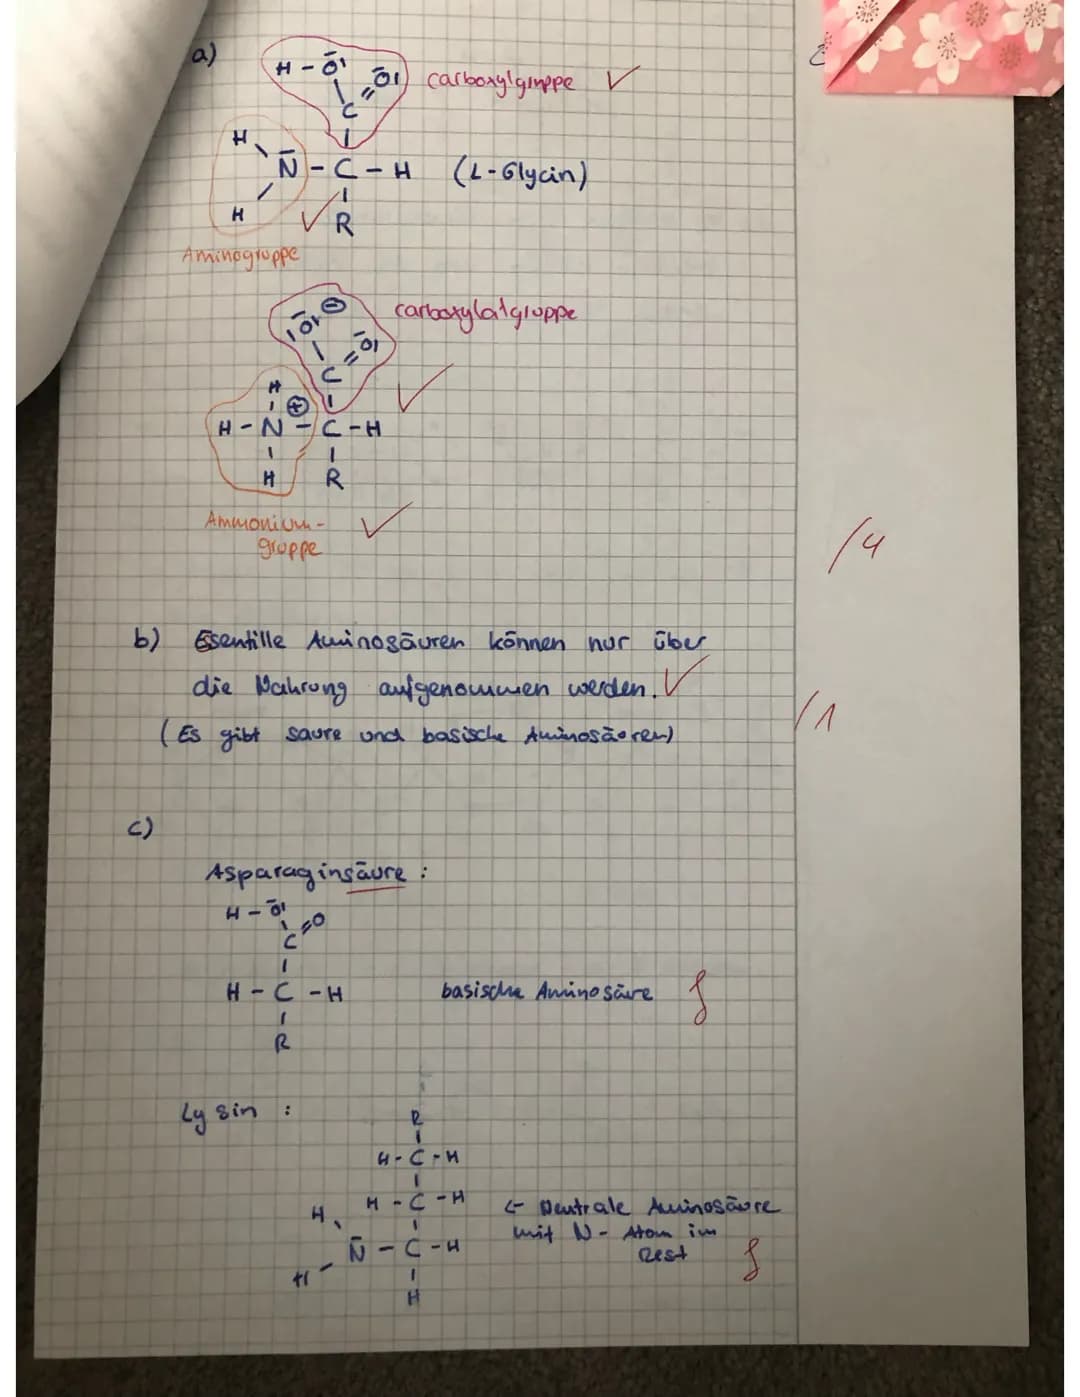 a)
H - O
O
carboxylgruppe ✓
C
H
N - C - H (L-Glycin)
H
R
Aminogruppe
⊖
carboxylatgruppe
O
O
C
H
⊕
H - N - C - H
H R
Ammonium-
gruppe
/4
b) Esentille Aminosäuren können nur über
die Nahrung aufgenommen werden. ✓
/1
(Es gibt saure und basische Aminosäuren)
c)
Asparaginsäure :
H - O
O
C
H - C - H basische Aminosäure f
R
Lysin :
R
H - C - H
H - C - H
← Neutrale Aminosäure
H
mit N - Atom im
N - C - H
Rest f
H
H